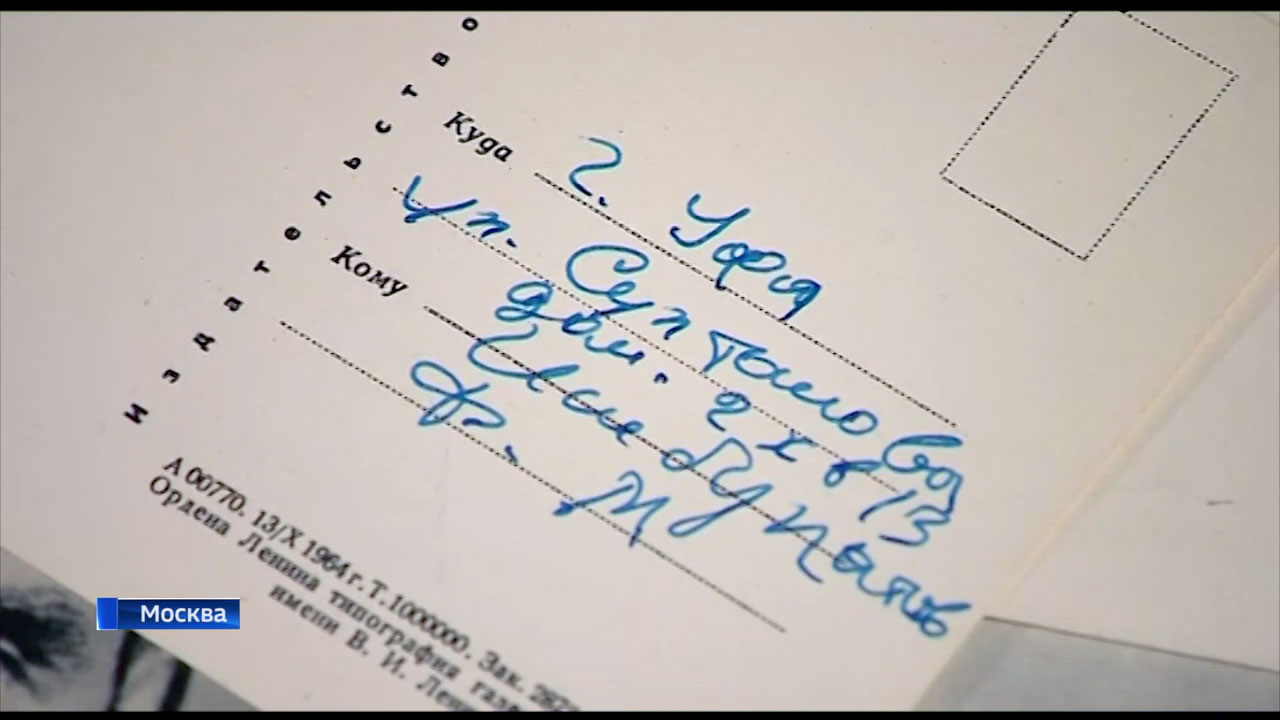 Издательство
Куда г. Уфа
ул. Султанова
дом. 2 кв 13
Кому Исянбулатов
Ф. М
А 00770. 13/X 1964 г. Т. 1000000. Зак.
Ордена Ленина типография
имени В. И.
Москва